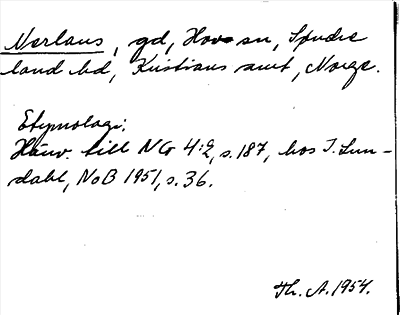 Nerlaus, gd, Hov sn, Søndre
land hd, Kristians amt, Norge.
Etymologi:
Hänv. till NG 4:2, s. 187, hos I. Lun-
dahl, NoB 1951, s. 36.
Th. A. 1954.